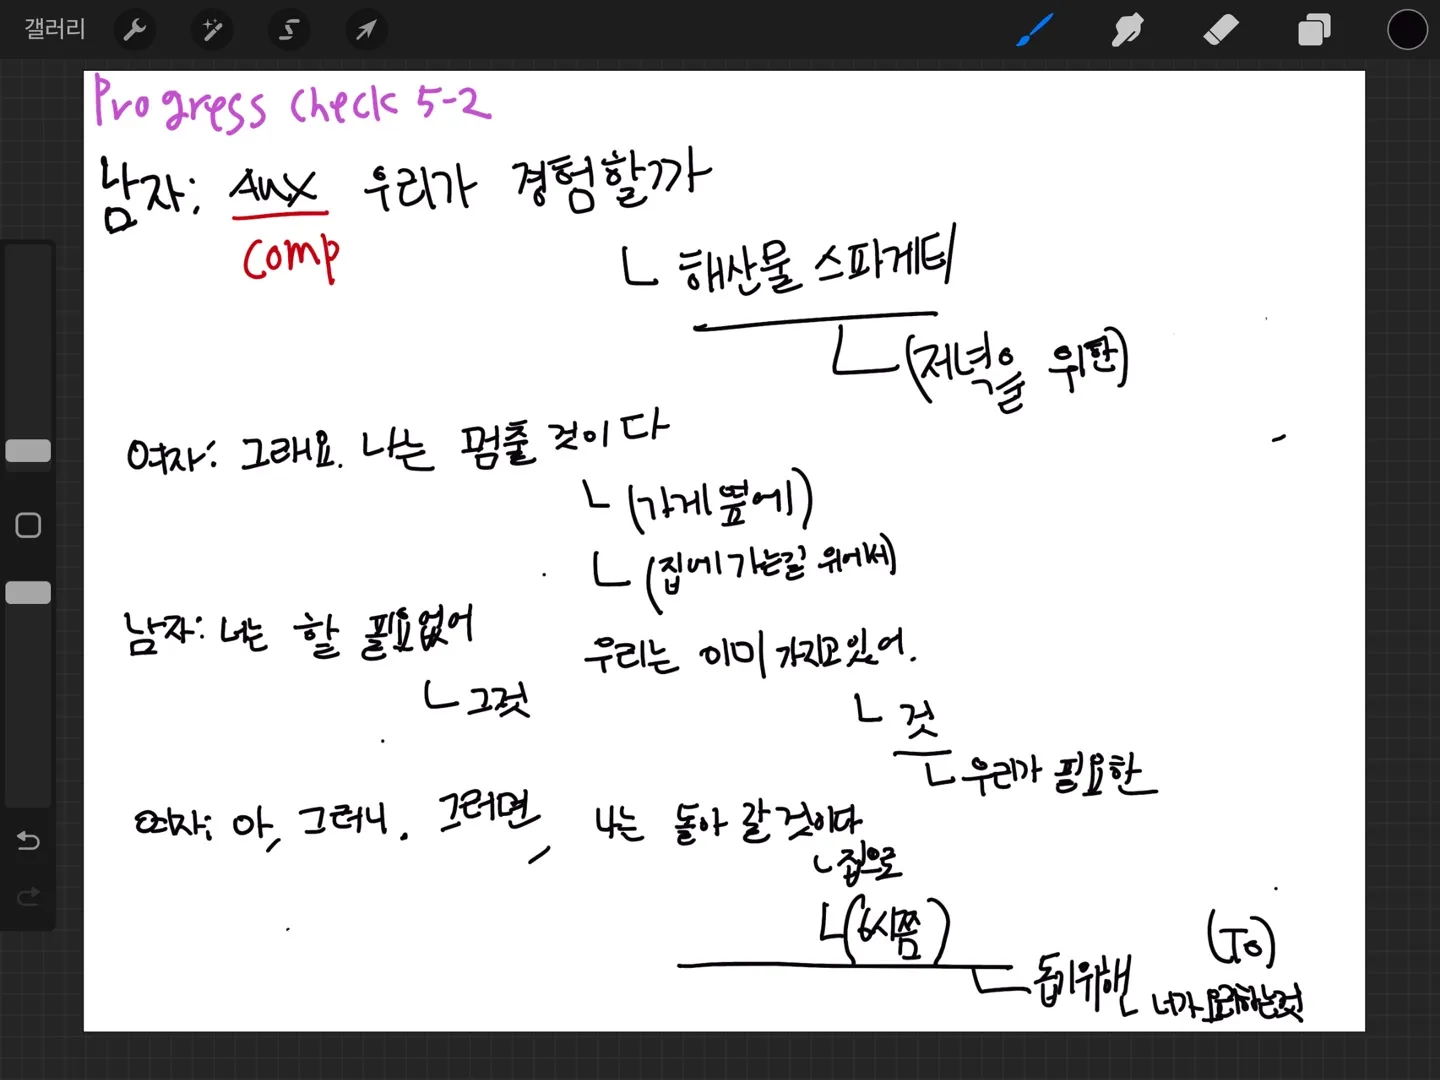 갤러리
Progress check 5-2
남자: Aux 우리가 경험할까
comp
해산물 스파게티
(저녁을 위한)
여자: 그래요. 나는 멈출 것이다
(가게 옆에)
(집에 가는길 위에서)
남자: 너는 할 필요없어 우리는 이미 가지고있어.
그것
것
우리가 필요한
여자: 아, 그러니. 그러면, 나는 돌아 갈 것이다
집으로
(6시쯤)
돕기위해 (To)
너가 요리하는것